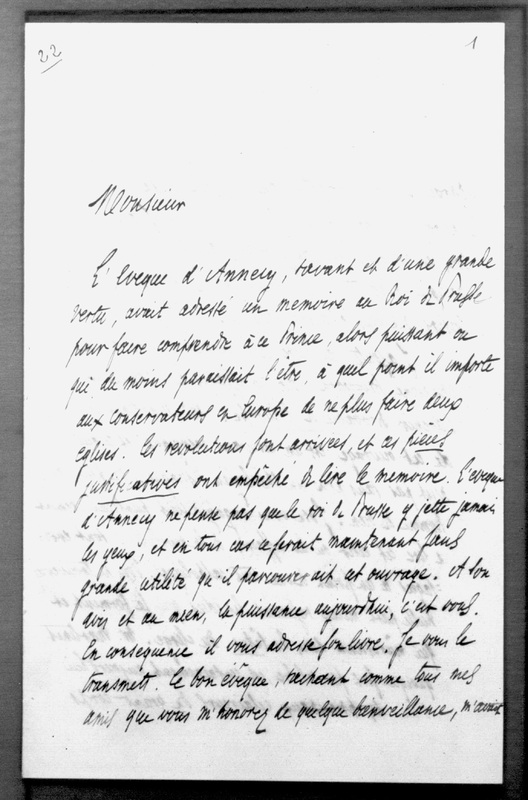 22
1
Monsieur
L'Evêque d'Annecy, savant et d'une grande
vertu, avait adressé un memoire au Roi de Prusse
pour faire comprendre à ce Prince, alors puissant ou
qui du moins paraissait l'être, à quel point il importe
aux conservateurs en Europe de ne plus faire deux
eglises. Les revolutions sont arrivées, et ces pieces
justificatives ont empêché de lire le memoire. L'eveque
d'Annecy ne pense pas que le roi de Prusse y jette jamais
les yeux, et en tous cas ce serait maintenant sans
grande utilité qu'il parcourerait cet ouvrage. A son
avis et au mien, la puissance aujourd'hui, c'est vous.
En consequence il vous adresse son livre. Je vous le
transmets. Le bon évêque, sachant comme tous mes
amis que vous m'honorez de quelque bienveillance, m'avait